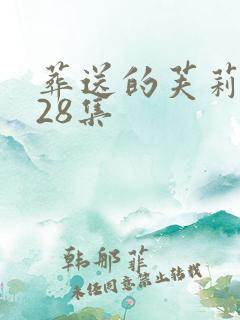 葬送的芙莉
28集
韩邮菲
未经同意禁止转载